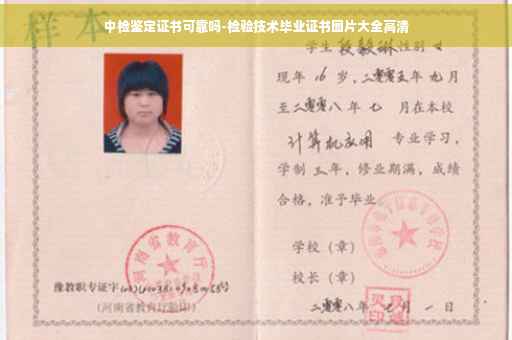 中检鉴定证书可靠吗-检验技术毕业证书图片大全高清
样本
学生段毅琳性别女
现年16岁,二零零五年九月
至二零零八年七月在本校
计算机应用 专业学习,
学制三年,修业期满,成绩
合格,准予毕业
学校(章)
校长(章)
二零零八年七月一日
河南省教育厅
豫教职专证字
(河南省教育厅验印)